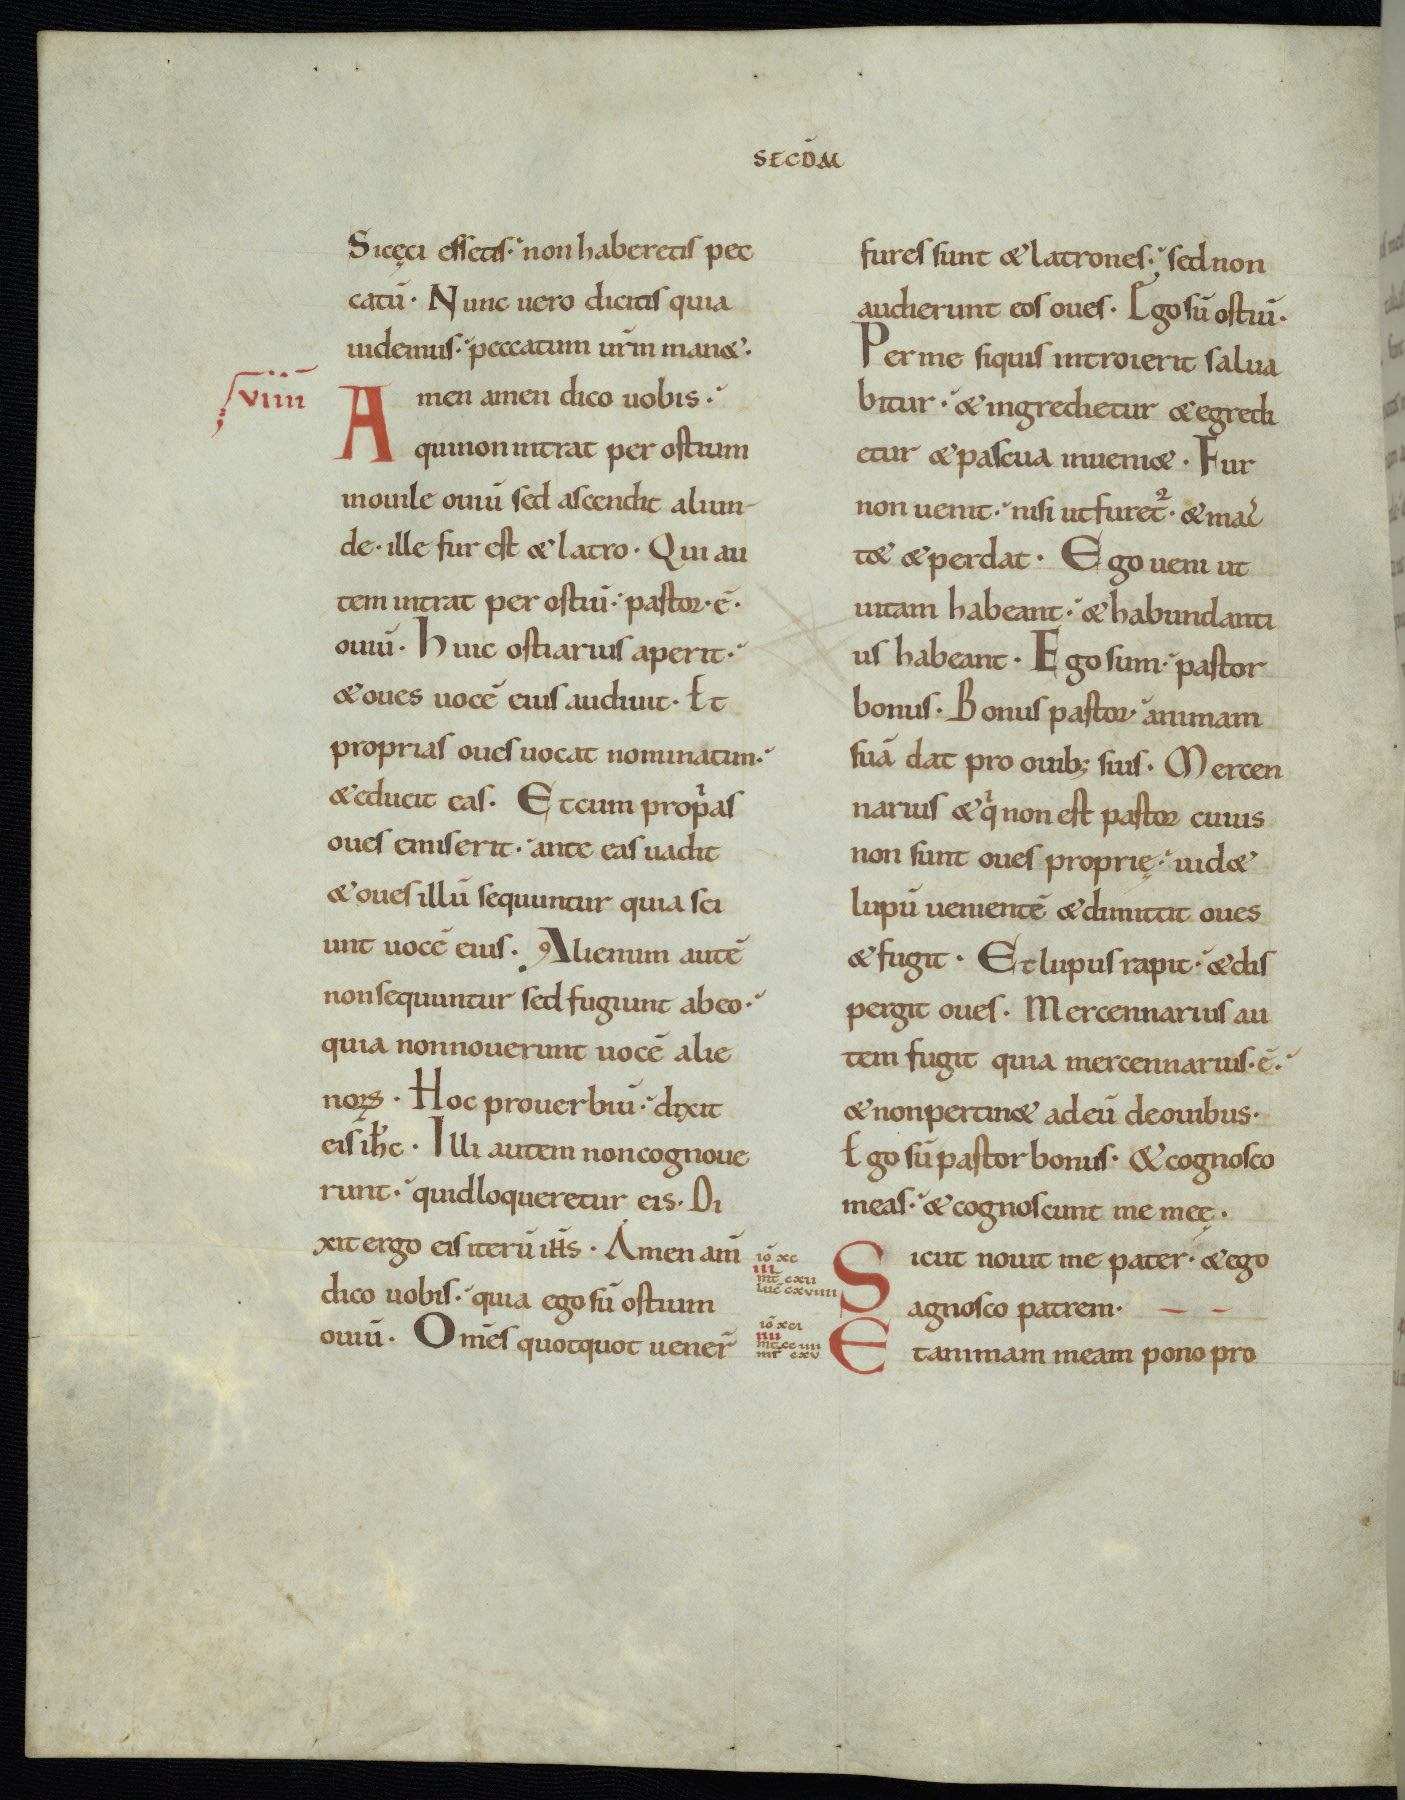 SECDM̄
Si cęci essetis· non haberetis pec
catū· Nunc uero dicitis quia
uidemus· peccatum urm̄ manet·
VIIII
Amen amen dico uobis·
qui non intrat per ostium
in ouile ouiū sed ascendit aliun-
de· ille fur est et latro· Qui au
tem intrat per ostiū· pastor· ē·
ouiū· Huic ostiarius aperit·
et oues uocē eius audiunt· Et
proprias oues uocat nominatim·
et educit eas· Et cum prop̄as
oues emiserit· ante eas uadit
et oues illū sequuntur quia sci
unt uocē eius· Alienum autē
non sequuntur sed fugiunt ab eo·
quia non nouerunt uocē alie
noꝝ· Hoc prouerbiū· dixit
eis ih̄c· Illi autem non cognoue
runt· quid loqueretur eis· Di
xit ergo eis iterū ih̄s· Amen am̄
dico uobis· quia ego sū ostium
ouiū· Om̄es quotquot uener̄
fures sunt et latrones· sed non
audierunt eos oues· Ego sū ostiū·
Per me siquis introierit salua
bitur· et ingredietur et egredi
etur et pascua inueniet· Fur
non uenit· nisi ut furet᷑· et mac
tet et perdat· Ego ueni ut
uitam habeant· et habundanti
us habeant· Ego sum· pastor
bonus· Bonus pastor· animam
suā dat pro ouib; suis· Mercen
narius et q̄ non est pastor cuius
non sunt oues proprię· uidet
lupū uenientē et dimittit oues
et fugit· Et lupus rapit· et dis
pergit oues· Mercennarius au
tem fugit quia mercennarius· ē·
et non pertinet ad eū de ouibus·
Ego sū pastor bonus· et cognosco
meas· et cognoscunt me meę·
iō xc
III
mt cxii
luc cxviiii
Sicut nouit me pater· et ego
agnosco patrem·
iō xci
IIII
mt cc iiii
mr cxv
Et animam meam pono pro